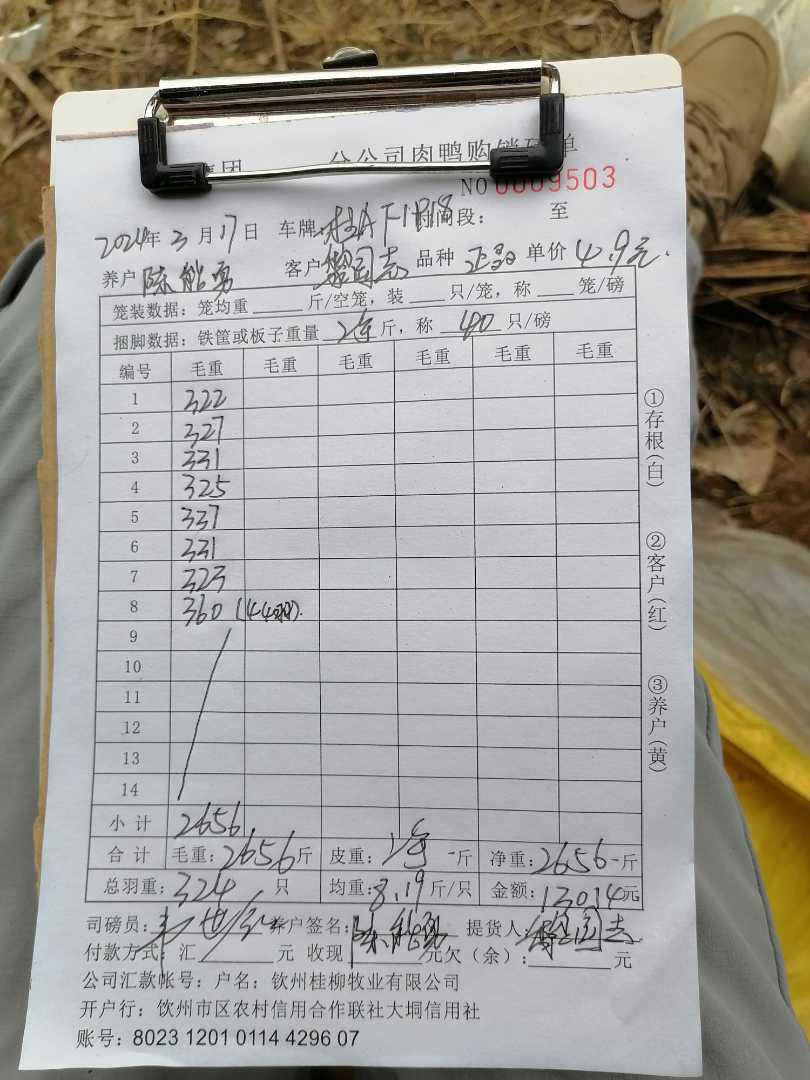 集团 分公司肉鸭购销磅单
NO 0009503
2024年3月17日 车牌: 时间段: 至
养户 陈能勇 客户 黎国志 品种 单价 4.9元.
笼装数据: 笼均重 斤/空笼, 装 只/笼, 称 笼/磅
捆脚数据: 铁筐或板子重量 斤, 称 40 只/磅
编号 毛重 毛重 毛重 毛重 毛重 毛重
1 322
2 327
3 331
4 325
5 337
6 331
7 323
8 360 (44羽).
9
10
11
12
13
14
小计 2656
合计 毛重: 2656斤 皮重: 斤 净重: 2656斤
总羽重: 324 只 均重: 8.19斤/只 金额: 13014元
司磅员: 养户签名: 陈能勇 提货人: 黎国志
付款方式: 汇 元 收现 元欠(余): 元
公司汇款帐号: 户名: 钦州桂柳牧业有限公司
开户行: 钦州市区农村信用合作联社大垌信用社
账号: 8023 1201 0114 4296 07
①存根(白)
②客户(红)
③养户(黄)